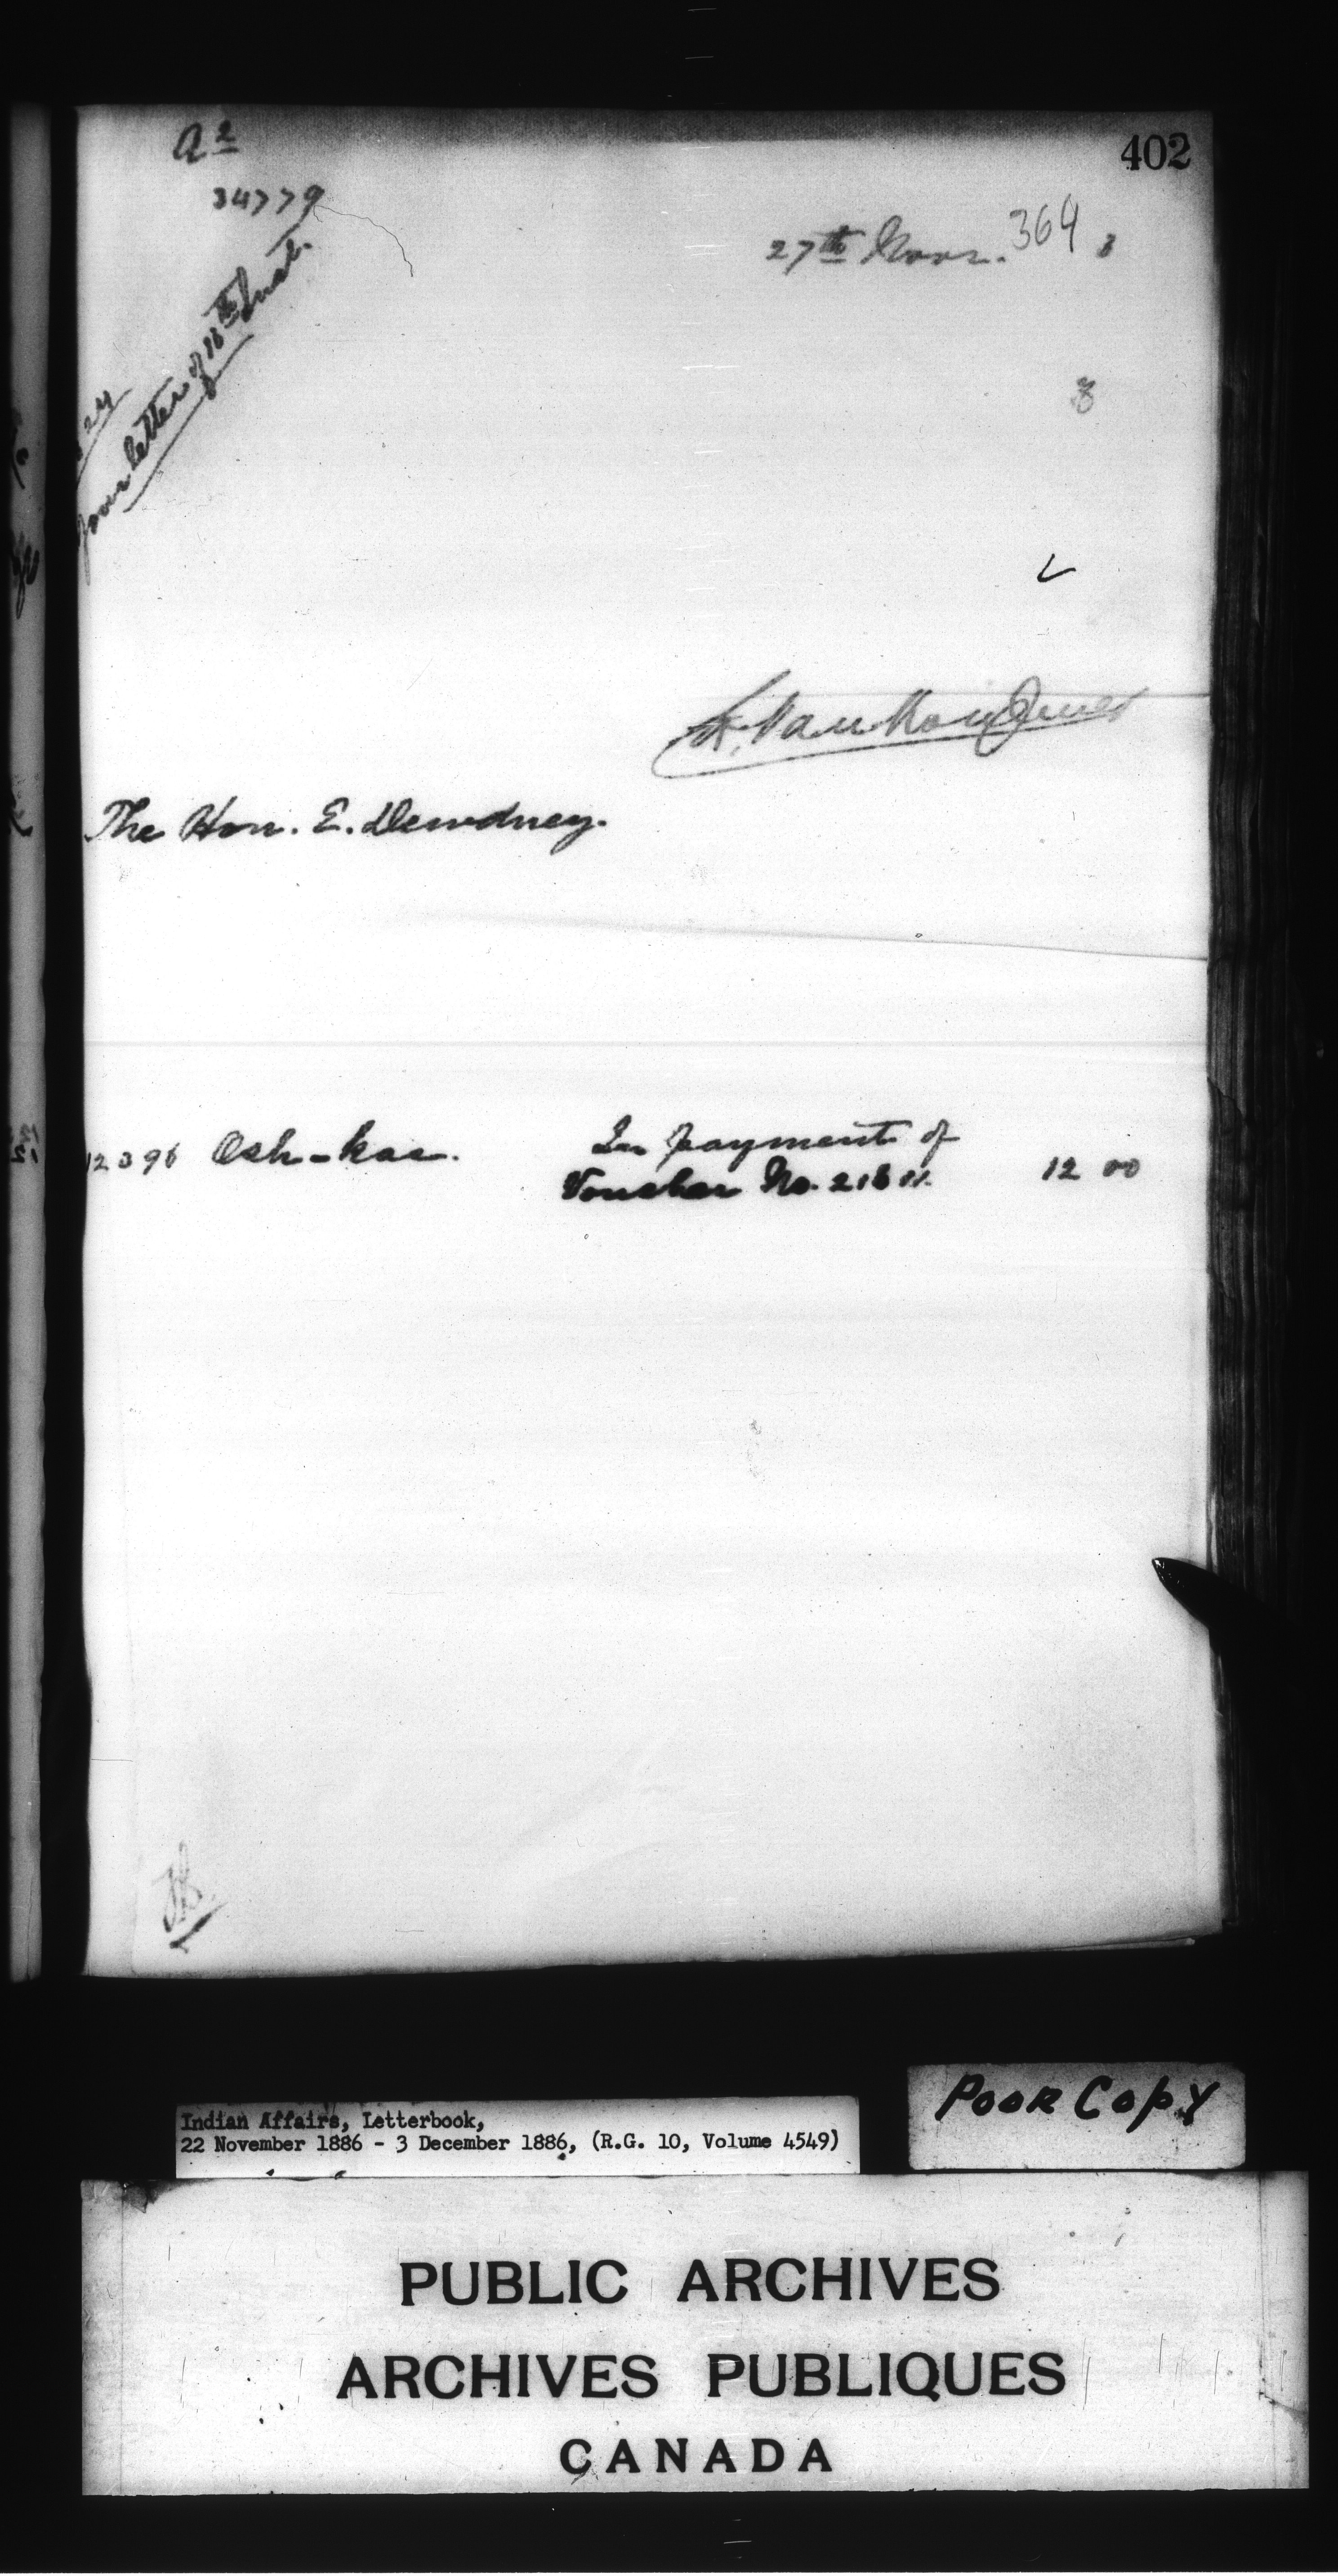 402
a 2
34779
27th Novr. 364 6
24
your letter of 16th Inst.
L. VanKoughnet
The Hon. E. Dewdney.
12396 Osh-kae. In payment of
Voucher No. 12 00
Indian Affairs, Letterbook,
22 November 1886 - 3 December 1886, (R.G. 10, Volume 4549)
POOR COPY
PUBLIC ARCHIVES
ARCHIVES PUBLIQUES
CANADA